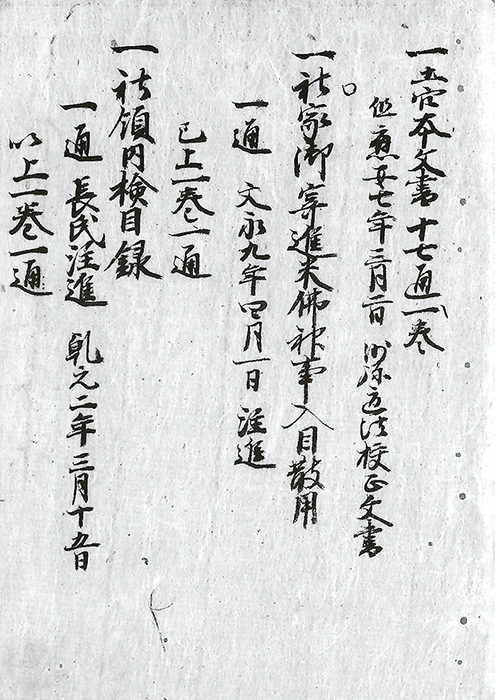 一 土宮本文書 十七通一巻
但應安七年三月二日 沙弥道法校正文書
一 社家御寄進米佛神事入目散用
一通 文永九年四月一日 注進
已上一巻一通
一 社領内検目録
一通 長氏注進 乾元二年三月十五日
以上一巻一通